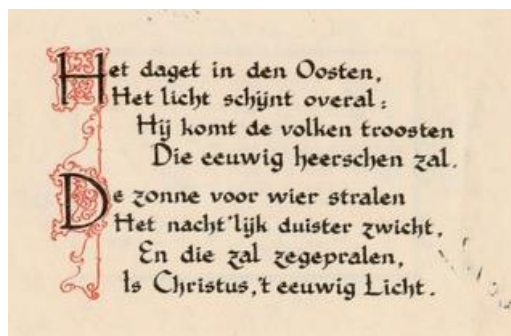 Het daget in den Oosten,
Het licht schijnt overal:
Hij komt de volken troosten
Die eeuwig heerschen zal.
De zonne voor wier stralen
Het nacht'lijk duister zwicht,
En die zal zegepralen,
Is Christus,'t eeuwig Licht.